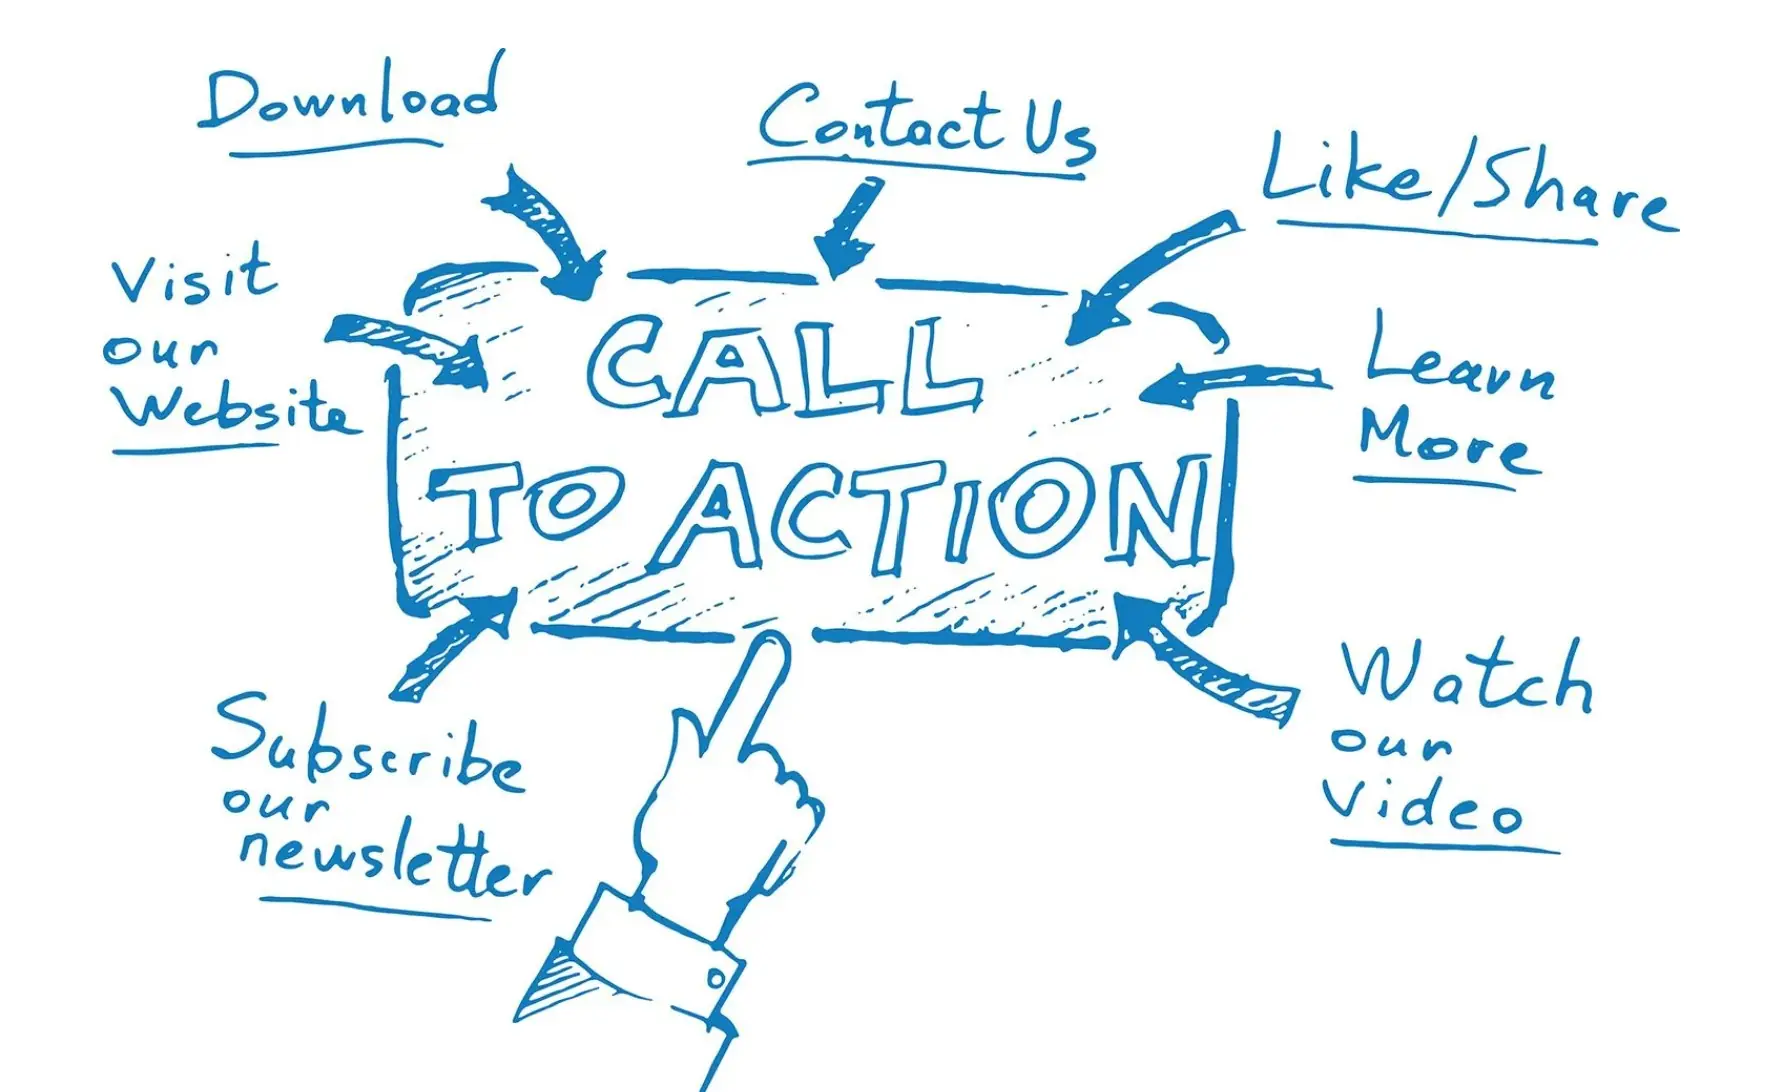 Download
Contact Us
Like/Share
Visit
our
Website
CALL
TO ACTION
Learn
More
Subscribe
our
newsletter
Watch
our
Video